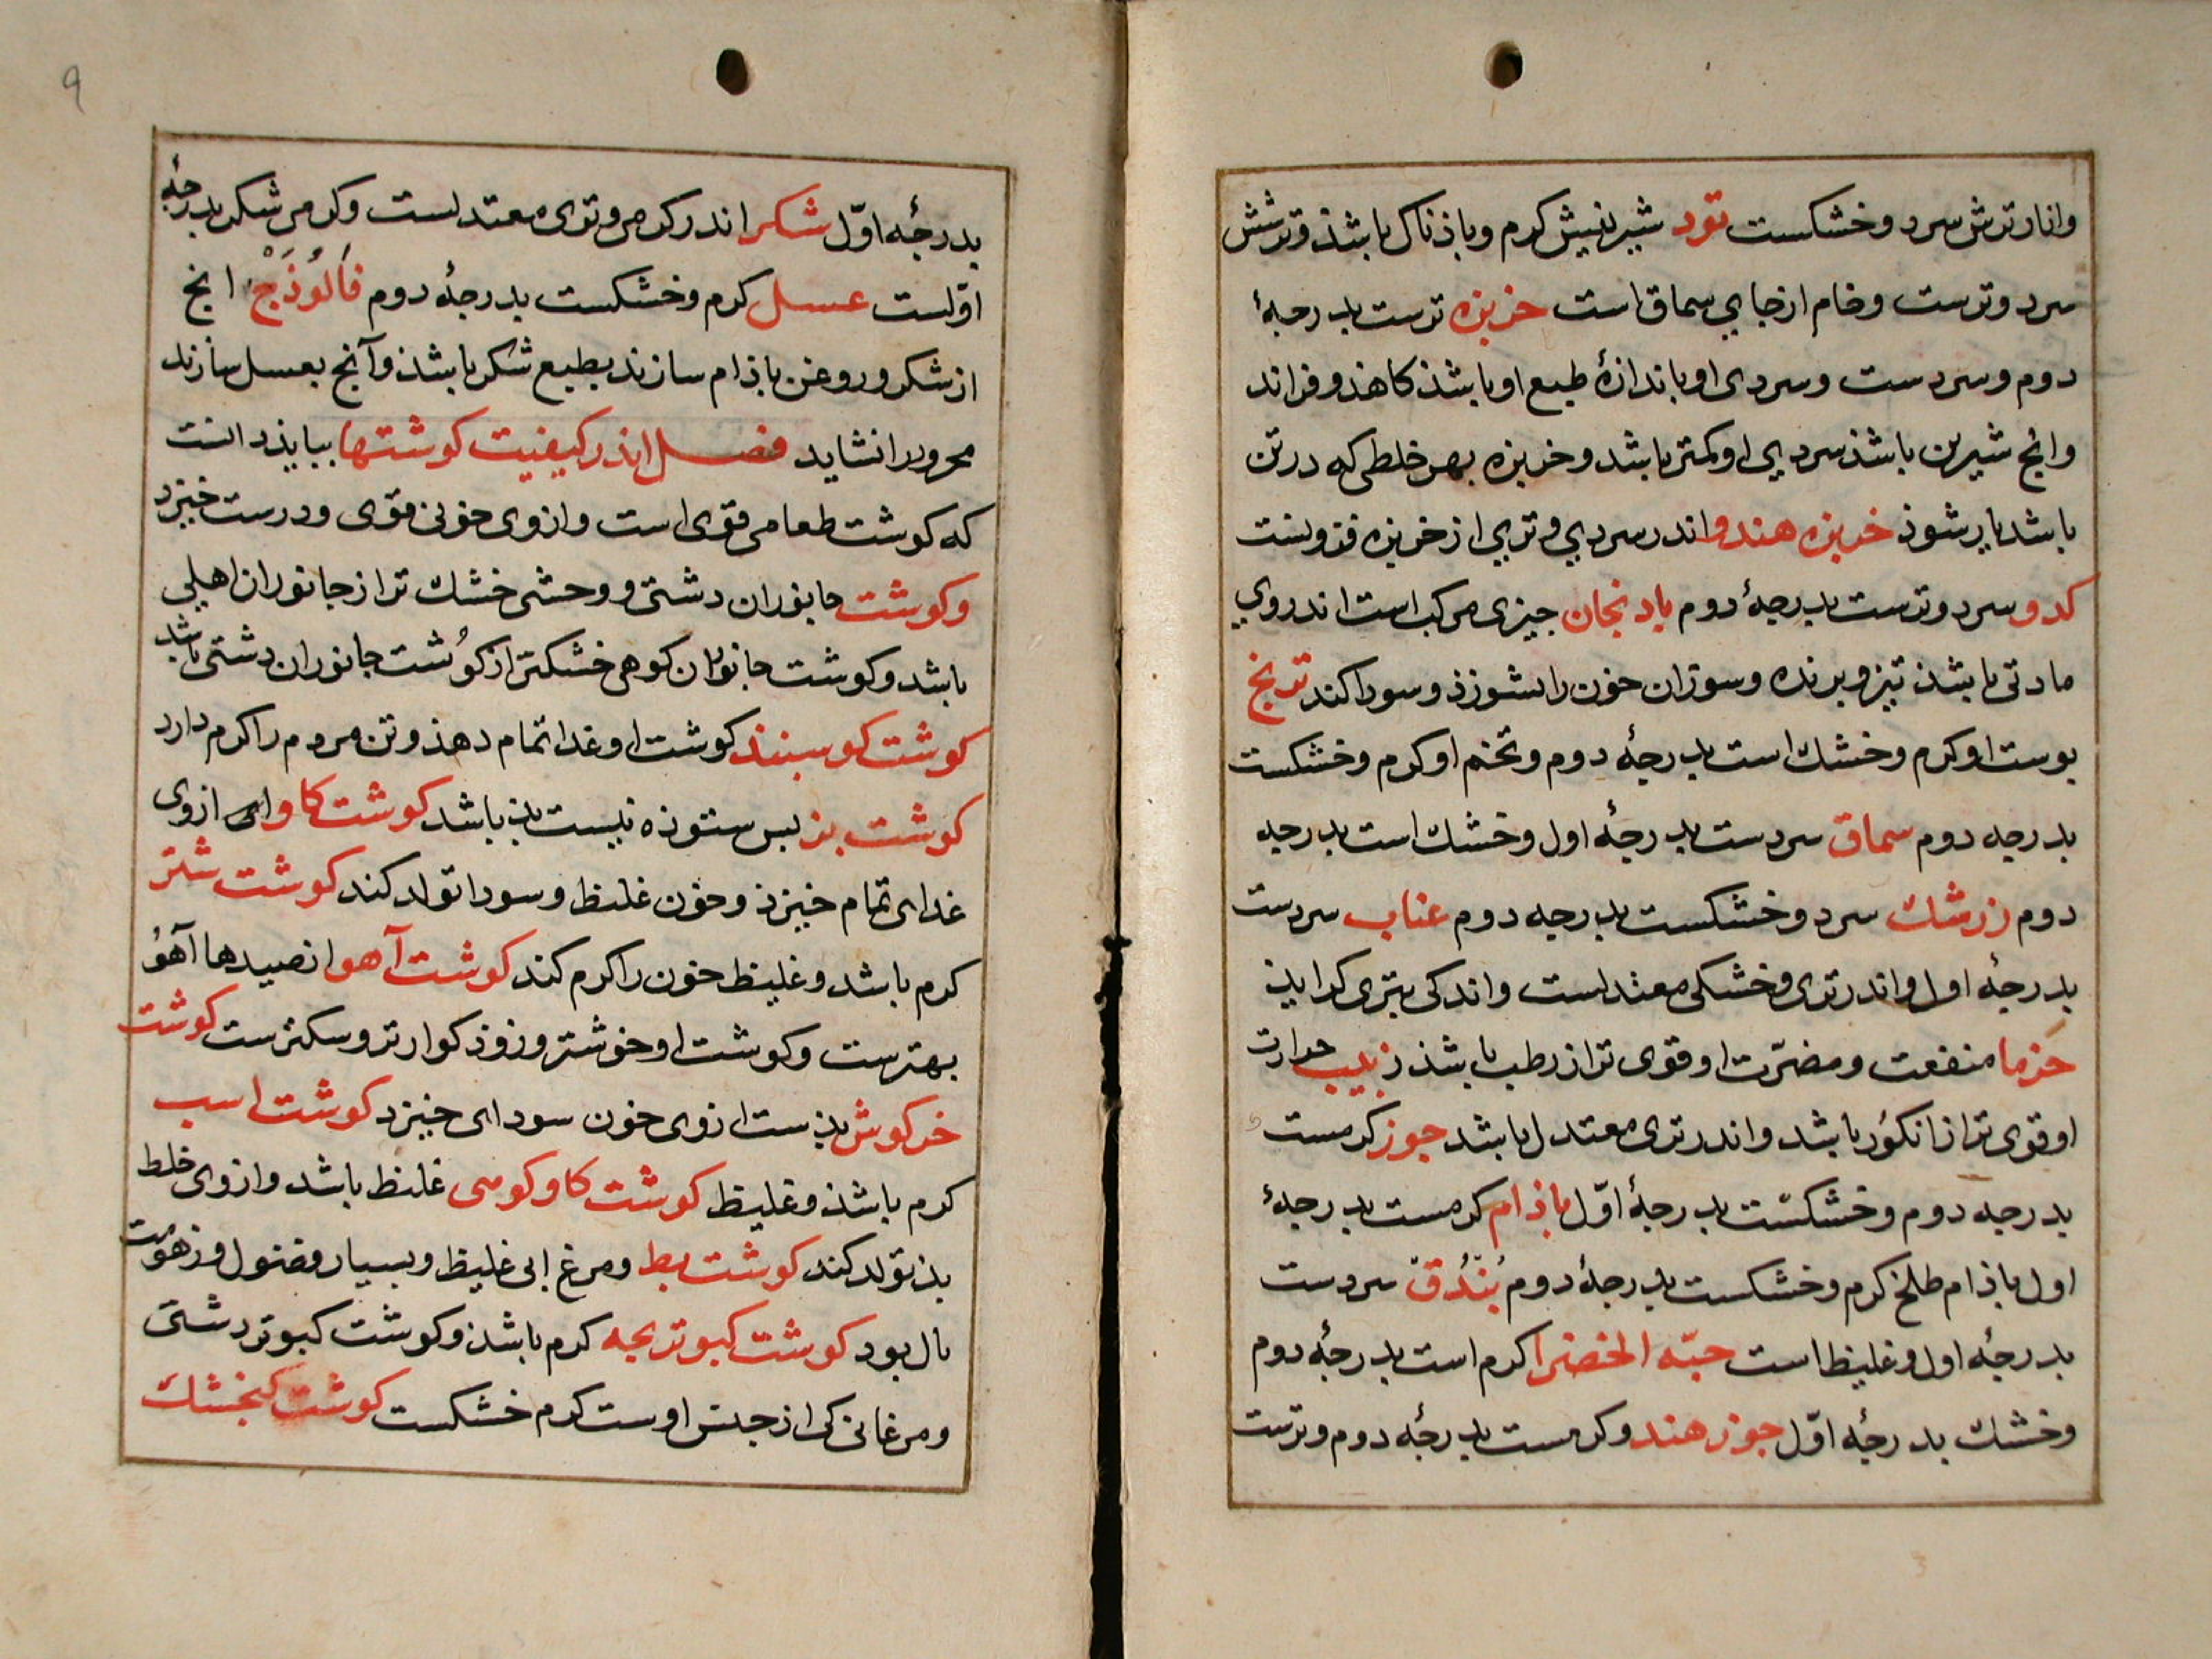 وانار ترش سرد وخشکست تود شیرینیش کرم وباذناک باشذ وترشش
سرد وترست وخام ازجای سماق است خربزه ترست بدرجهٔ
دوم وسردست وسردی او باندازهٔ طبع او باشذ کاهذ وفزاند
وانج شیرین باشذ سردیی او کمتر باشد وخربزه بهر خلطی که درتن
باشد یار شوذ خربزه هندو اندرسردیی وتریی ازخربزه فزونست
کدو سرد وترست بدرجهٔ دوم بادنجان جیزی مرکب است اندروی
مادتی باشذ تیز وبرنده وسوزان خون رابسوزذ وسودا کند ترنج
بوست او کرم وخشك است بدرجهٔ دوم وتخم او کرم وخشکست
بدرجه دوم سماق سردست بدرجهٔ اول وخشك است بدرجه
دوم زرشك سرد وخشکست بدرجه دوم عناب سردست
بدرجهٔ اول واندرتری وخشکی معتدلست واندکی بتری کراید
خرما منفعت ومضرّت او قوی تر ازرطب باشذ زبیب حرارت
او قوی تر ازانکور باشد واندرتری معتدل باشد جوز کرمست
بدرجه دوم وخشکست بدرجهٔ اوّل باذام کرمست بدرجهٔ
اول باذام طلخ کرم وخشکست بدرجهٔ دوم بُنْدُق سردست
بدرجهٔ اول وغلیظ است حبّه الخضرا کرم است بدرجهٔ دوم
وخشك بدرجهٔ اوّل جوز هندو کرمست بدرجهٔ دوم وترست
۹
بدرجهٔ اوّل شکر اندرکرمی وتری معتدلست وکرمی شکر بدرجهٔ
اوّلست عسل کرم وخشکست بدرجهٔ دوم فَالُوْذَجْ انج
ازشکر وروغن باذام سازند بطبع شکر باشذ وآنج بعسل سازند
محرور را نشاید فصل اندر کیفیت کوشتها ببایذ دانست
که کوشت طعامی قوی است وازوی خونی قوی ودرست خیزد
وکوشت جانوران دشتی ووحشی خشك تر ازجانوران اهلی
باشد وکوشت جانوران کوهی خشکتر ازکوشت جانوران دشتی باشد
کوشت کوسبند کوشت او غدا تمام دهذ وتن مردم را کرم دارد
کوشت بز بس ستوذه نیست بذ باشد کوشت کاو ازوی
غدای تمام خیزذ وخون غلیظ وسودا تولد کند کوشت شتر
کرم باشد وغلیظ خون را کرم کند کوشت آهو ازصیدها آهو
بهترست وکوشت او خوشتر وزوذ کوارتر وسبکترست کوشت
خرکوش بذست ازوی خون سودای خیزد کوشت اسب
کرم باشذ وغلیظ کوشت کاوکومی غلیظ باشد وازوی خلط
بذ تولد کند کوشت بط ومرغ ابی غلیظ وبسیار فضول وزهومت
ناك بود کوشت کبوتر بجه کرم باشذ وکوشت کبوتر دشتی
ومرغانی کی ازجنس اوست کرم خشکست کوشت کنجشك